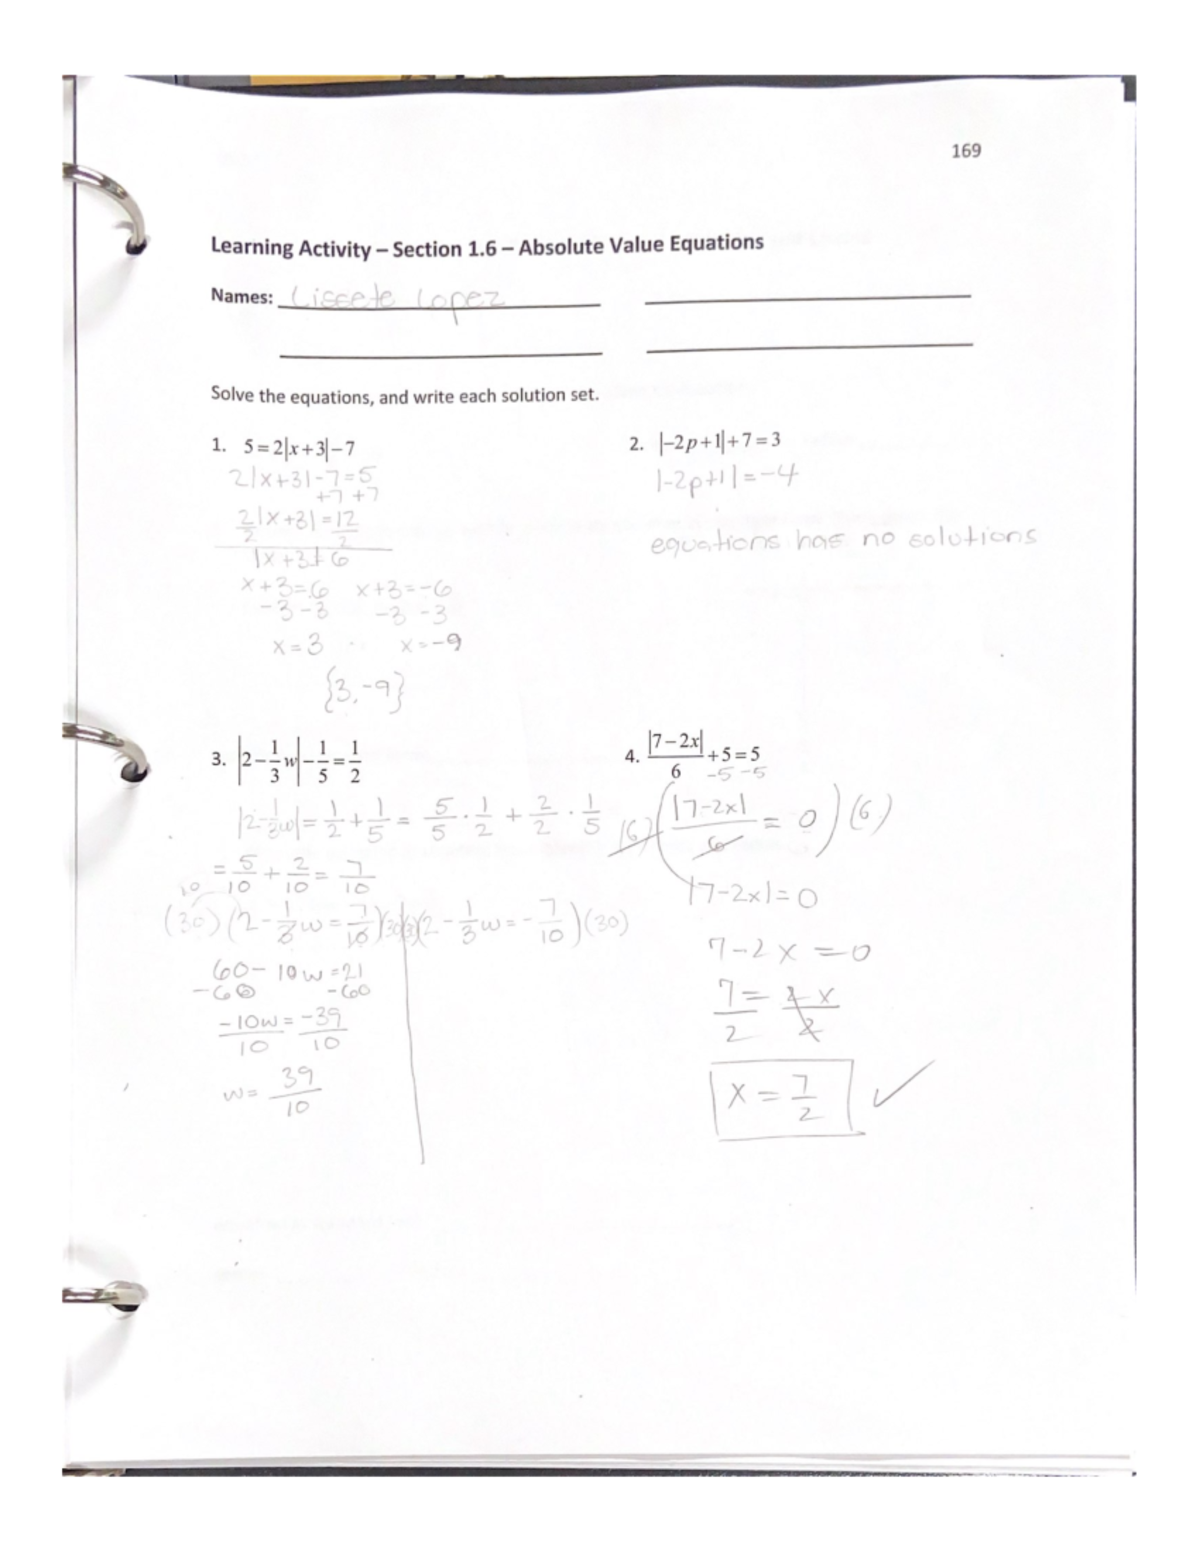 169
Learning Activity – Section 1.6 – Absolute Value Equations
Names: Lissete Lopez
Solve the equations, and write each solution set.
1. 5=2|x+3|−7
2|x+3|-7=5
+7 +7
2|x+3|=12
2 2
|x+3|=6
x+3=6 x+3=-6
-3-3 -3 -3
x=3 x=-9
{3,-9}
2. |−2p+1|+7=3
|-2p+1|=-4
equations has no solutions
3. |2−1/3 w|−1/5=1/2
|2-1/3w|=1/2+1/5= 5/5·1/2 + 2/2·1/5
=5/10+2/10=7/10
10
(30)(2-1/3w=7/10)(30) (30)(2-1/3w=-7/10)(30)
60-10w=21
-60 -60
-10w=-39
10 10
w= 39/10
4. |7−2x|/6+5=5
-5 -5
(6)(|7-2x|/6 = 0)(6)
|7-2x|=0
7-2x=0
7/2=2x/2
x=7/2 ✓